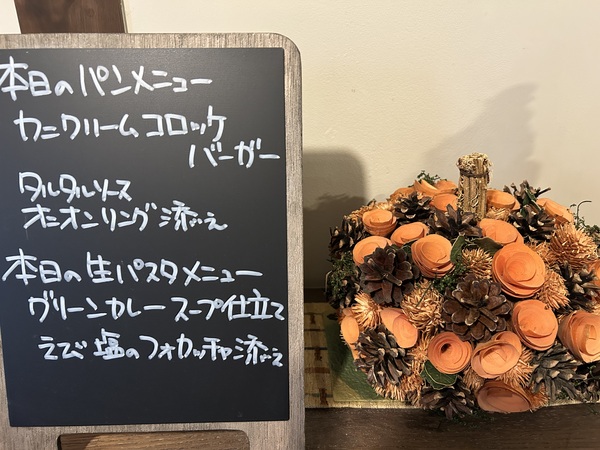 本日のパンメニュー
カニクリームコロッケ
バーガー
タルタルソース
オニオンリング添え
本日の生パスタメニュー
グリーンカレースープ仕立て
えび塩のフォカッチャ添え